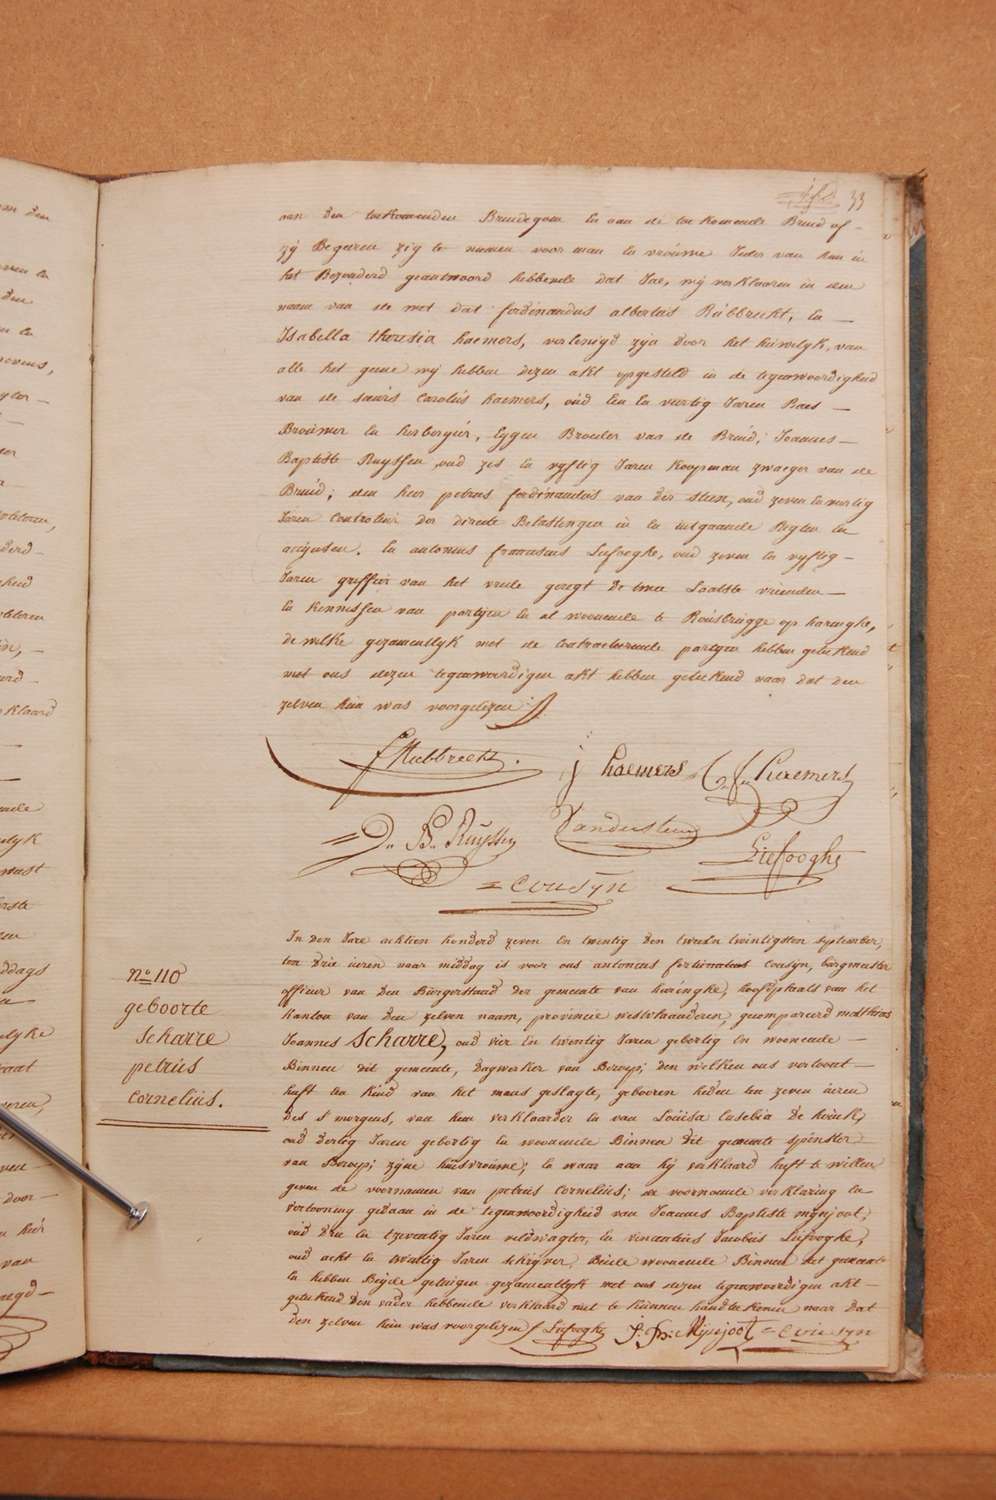 33
aan den toekomenden Bruidegom en aan de toekomende Bruid of -
zij Begeeren zig te neemen voor man en vrouwe Ieder van hun in
het Bezonderd geantwoord hebbende dat Jae, wij verklaaren in den
naam van de wet dat ferdinandus albertus Rubbrecht, en —
Isabella theresia haemers, verlenigd zijn door het huwelyk, van
alle het geene wij hebben dezen akt opgesteld in de tegenwoordigheid
van de sieurs Carolus haemers, oud een en veertig Jaren Baes —
Brouwer en herbergier, Eygen Broeder van de Bruid; Joannes —
Baptiste Ruyssen oud zes en vyftig Jaren Koopman zwaeger van de
Bruid; den heer petrus ferdinandus van der steen, oud zeven en veertig
Jaren Controleur der directe Belastingen in en uitgaande Regten en
accijnsen. en antonius franciscus Liefooghe, oud zeven en vyftig —
Jaren griffier van het vrede geregt de twee Laatste vrienden —
en kennissen van partyen en al woonende te Rousbrugge op haringhe,
de welke gezamentlyk met de Contracteerende partyen hebben geteekend
met ons dezen tegenwoordigen akt hebben geteekend naar dat den
zelven hun was voorgelezen
f Rubbrecht. j haemers C. f. haemers
= D. B. Ruyssen Vandersteen Liefooghe
= Cousyn
In den Jare achtien honderd zeven en twintig den tweeen twintigsten september,
ten drie uren naar middag is voor ons antonius fortunatus Cousyn, burgmeester
officier van den Burgerstaad der gemeente van haringhe, hoofdplaats van het
kanton van den zelven naam, provincie westvlaanderen, gecompareerd matthias
Joannes Scharre, oud vier en twintig Jaren gebortig en woonende —
Binnen dit gemeente, dagwerker van Beroep; den welken ons vertoont —
heeft een kind van het mans geslagte, gebooren heden ten zeven uren
des s'morgens, van hem verklaarder en van Louisa Eusebia De
oud dertig Jaren gebortig en woonende Binnen dit gemeente spinster
van Beroep; zijne huisvrouwe; en waar aan hij verklaard heeft te willen
geven de voornamen van petrus Cornelius; de voornoemde verklaring en
vertooning gedaan in de tegenwoordigheid van Joannes Baptiste mysjoot,
oud drie en tzeventig Jaren veldwagter, en vincentius Jacobus Liefooghe,
oud acht en twintig Jaren schryver, Beide woonende Binnen det gemeente
en hebben Beyde getuigen gezamentlyk met ons dezen tegenwoordigen akt —
geteekend den vader hebbende verklaard niet te kunnen handteekenen naar dat
den zelven hun was voorgelezen Liefooghe J. B: Mysjoot = Cousyn
n° 110
geboorte
Scharre
petrus
cornelius.